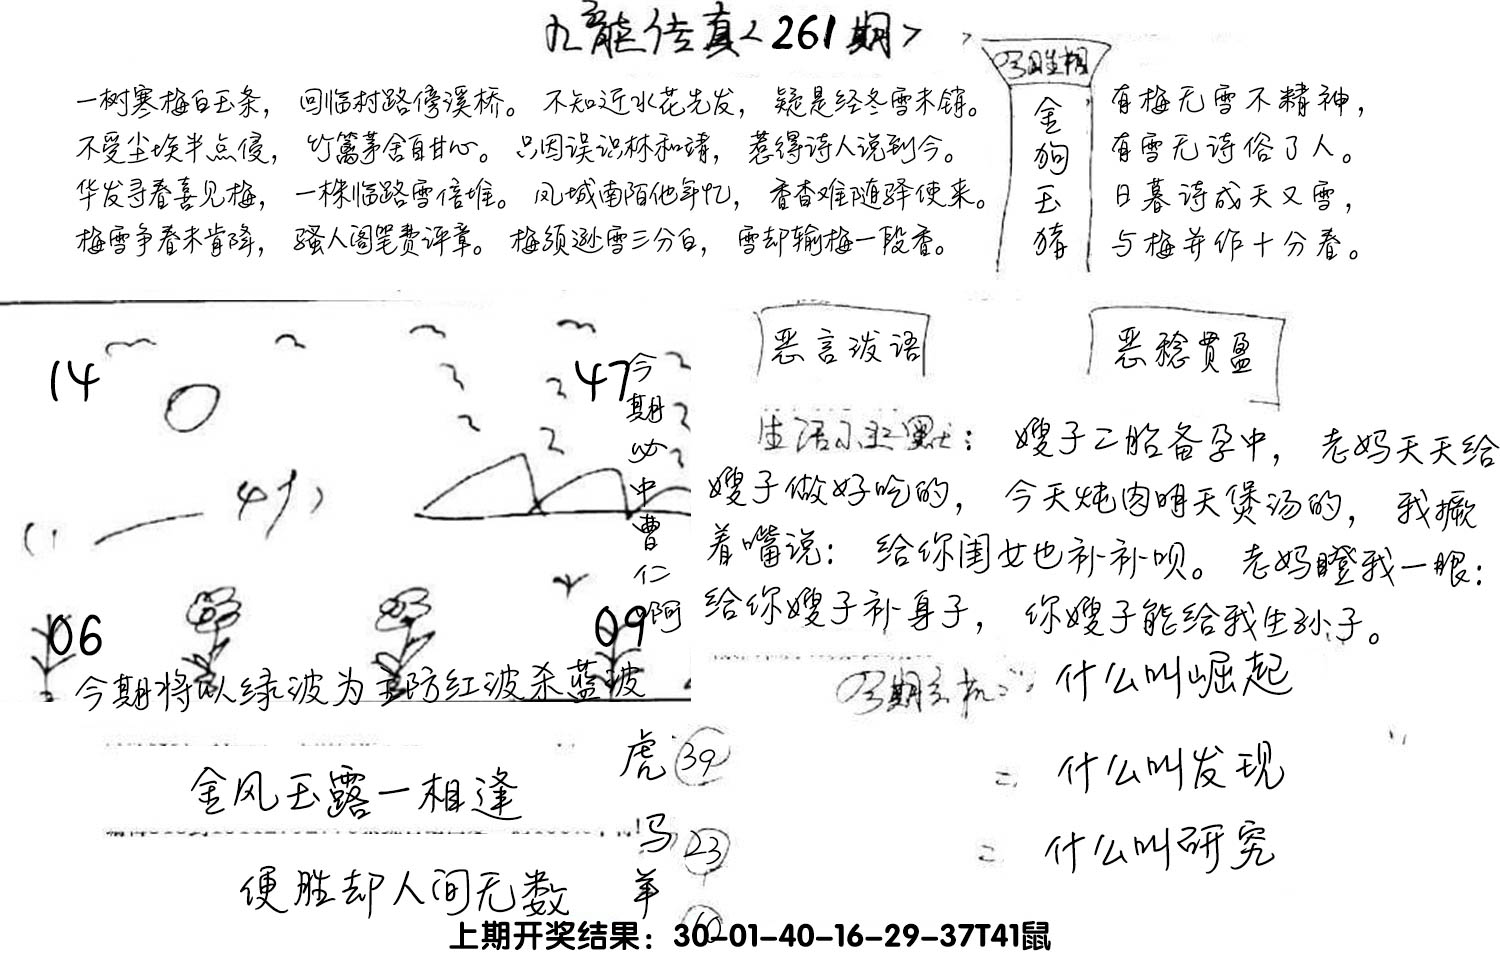 九龙传真<261期>
一树寒梅白玉条，回临村路傍溪桥。不知近水花先发，疑是经冬雪未销。
不受尘埃半点侵，竹篱茅舍自甘心。只因误识林和靖，惹得诗人说到今。
华发寻春喜见梅，一株临路雪倍堆。凤城南陌他年忆，香杳难随驿使来。
梅雪争春未肯降，骚人阁笔费评章。梅须逊雪三分白，雪却输梅一段香。
金狗玉猪
有梅无雪不精神，
有雪无诗俗了人。
日暮诗成天又雪，
与梅并作十分春。
14
47
今期必中曹仁啊
06
09
今期将以绿波为主防红波杀蓝波
恶言泼语
恶稔贯盈
生活小幽默：嫂子二胎备孕中，老妈天天给
嫂子做好吃的，今天炖肉明天煲汤的，我撅
着嘴说：给你闺女也补补呗。老妈瞪我一眼：
给你嫂子补身子，你嫂子能给我生孙子。
什么叫崛起
什么叫发现
什么叫研究
金风玉露一相逢
便胜却人间无数
虎 39
马 23
羊
上期开奖结果：30-01-40-16-29-37T41鼠